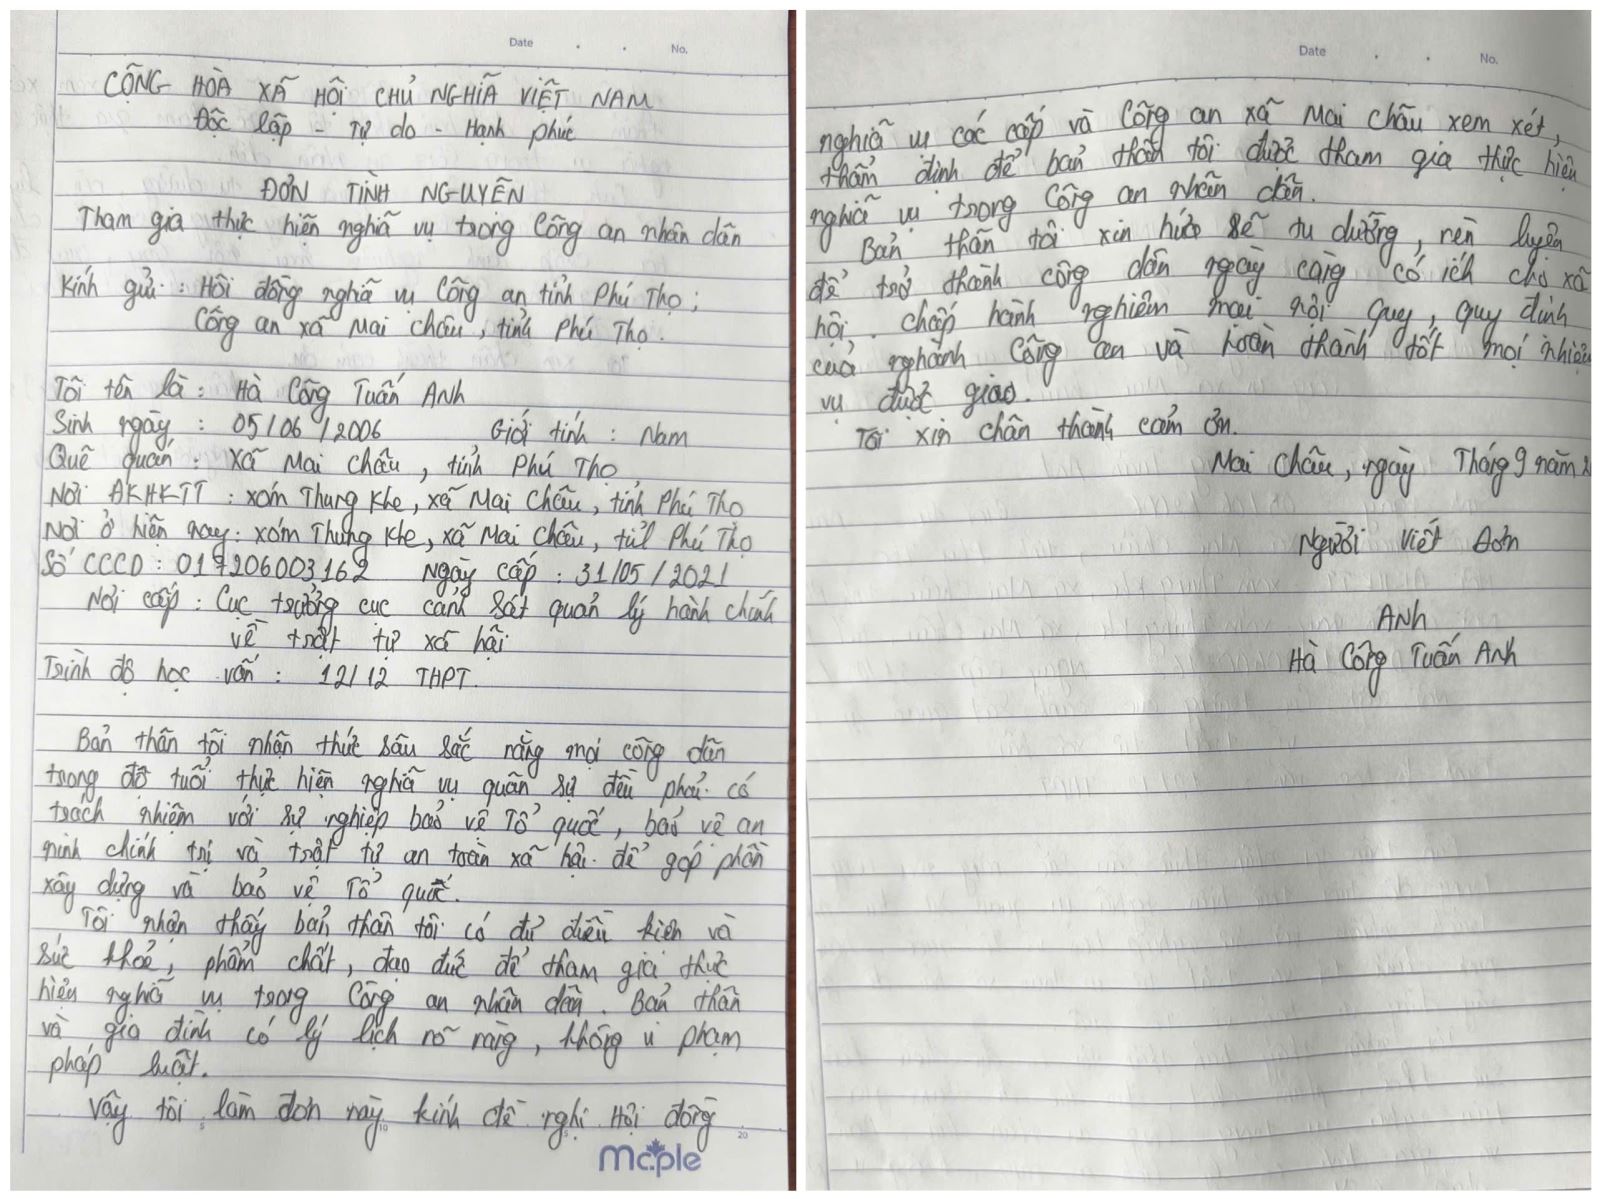 Date . . No.
CỘNG HÒA XÃ HỘI CHỦ NGHĨA VIỆT NAM
Độc lập - Tự do - Hạnh phúc
ĐƠN TÌNH NGUYỆN
Tham gia thực hiện nghĩa vụ trong Công an nhân dân
Kính gửi : Hội đồng nghĩa vụ Công an tỉnh Phú Thọ ;
Công an xã Mai Châu, tỉnh Phú Thọ.
Tôi tên là : Hà Công Tuấn Anh
Sinh ngày : 05/06/2006 Giới tính : Nam
Quê quán : Xã Mai Châu, tỉnh Phú Thọ
Nơi ĐKHKTT : xóm Thung Khe, xã Mai Châu, tỉnh Phú Thọ
Nơi ở hiện nay : xóm Thung Khe, xã Mai Châu, tỉnh Phú Thọ
Số CCCD : 017206003162 Ngày cấp : 31/05/2021
Nơi cấp : Cục trưởng cục cảnh sát quản lý hành chính
về trật tự xã hội
Trình độ học vấn : 12/12 THPT.
Bản thân tôi nhận thức sâu sắc rằng mọi công dân
trong độ tuổi thực hiện nghĩa vụ quân sự đều phải có
trách nhiệm với sự nghiệp bảo vệ Tổ quốc, bảo vệ an
ninh chính trị và trật tự an toàn xã hội. để góp phần
xây dựng và bảo vệ Tổ quốc.
Tôi nhận thấy bản thân tôi có đủ điều kiện và
sức khoẻ, phẩm chất, đạo đức để tham gia thực
hiện nghĩa vụ trong Công an nhân dân. Bản thân
và gia đình có lý lịch rõ ràng, không vi phạm
pháp luật.
Vậy tôi làm đơn này kính đề nghị Hội đồng
Maple
Date . . No.
nghĩa vụ các cấp và Công an xã Mai Châu xem xét,
thẩm định để bản thân tôi được tham gia thực hiện
nghĩa vụ trong Công an nhân dân.
Bản thân tôi xin hứa sẽ tu dưỡng, rèn luyện
để trở thành công dân ngày càng có ích cho xã
hội, chấp hành nghiêm mọi nội quy, quy định
của nghành Công an và hoàn thành tốt mọi nhiệm
vụ được giao.
Tôi xin chân thành cảm ơn.
Mai Châu, ngày Tháng 9 năm 2
Người Viết Đơn
Anh
Hà Công Tuấn Anh